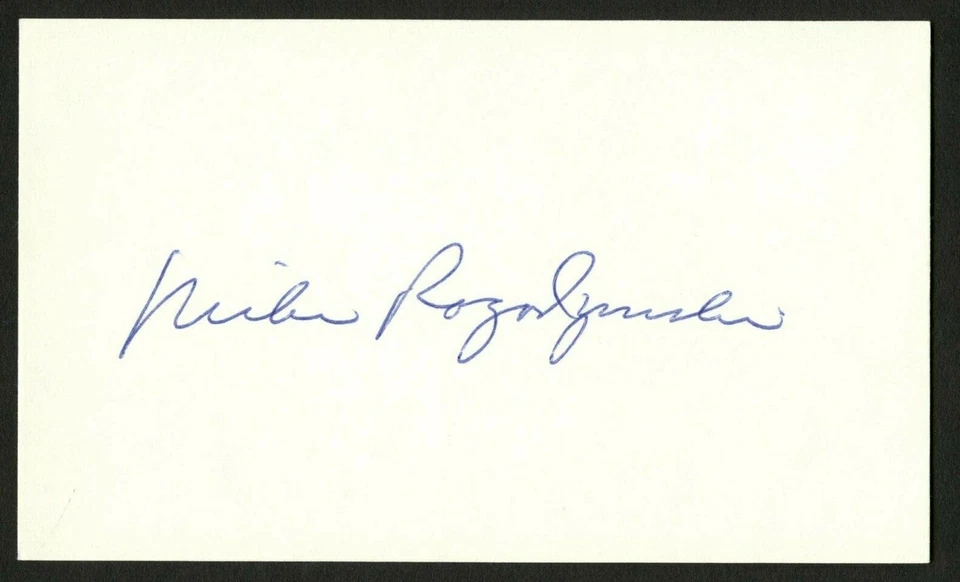 Mike Rogodzinski